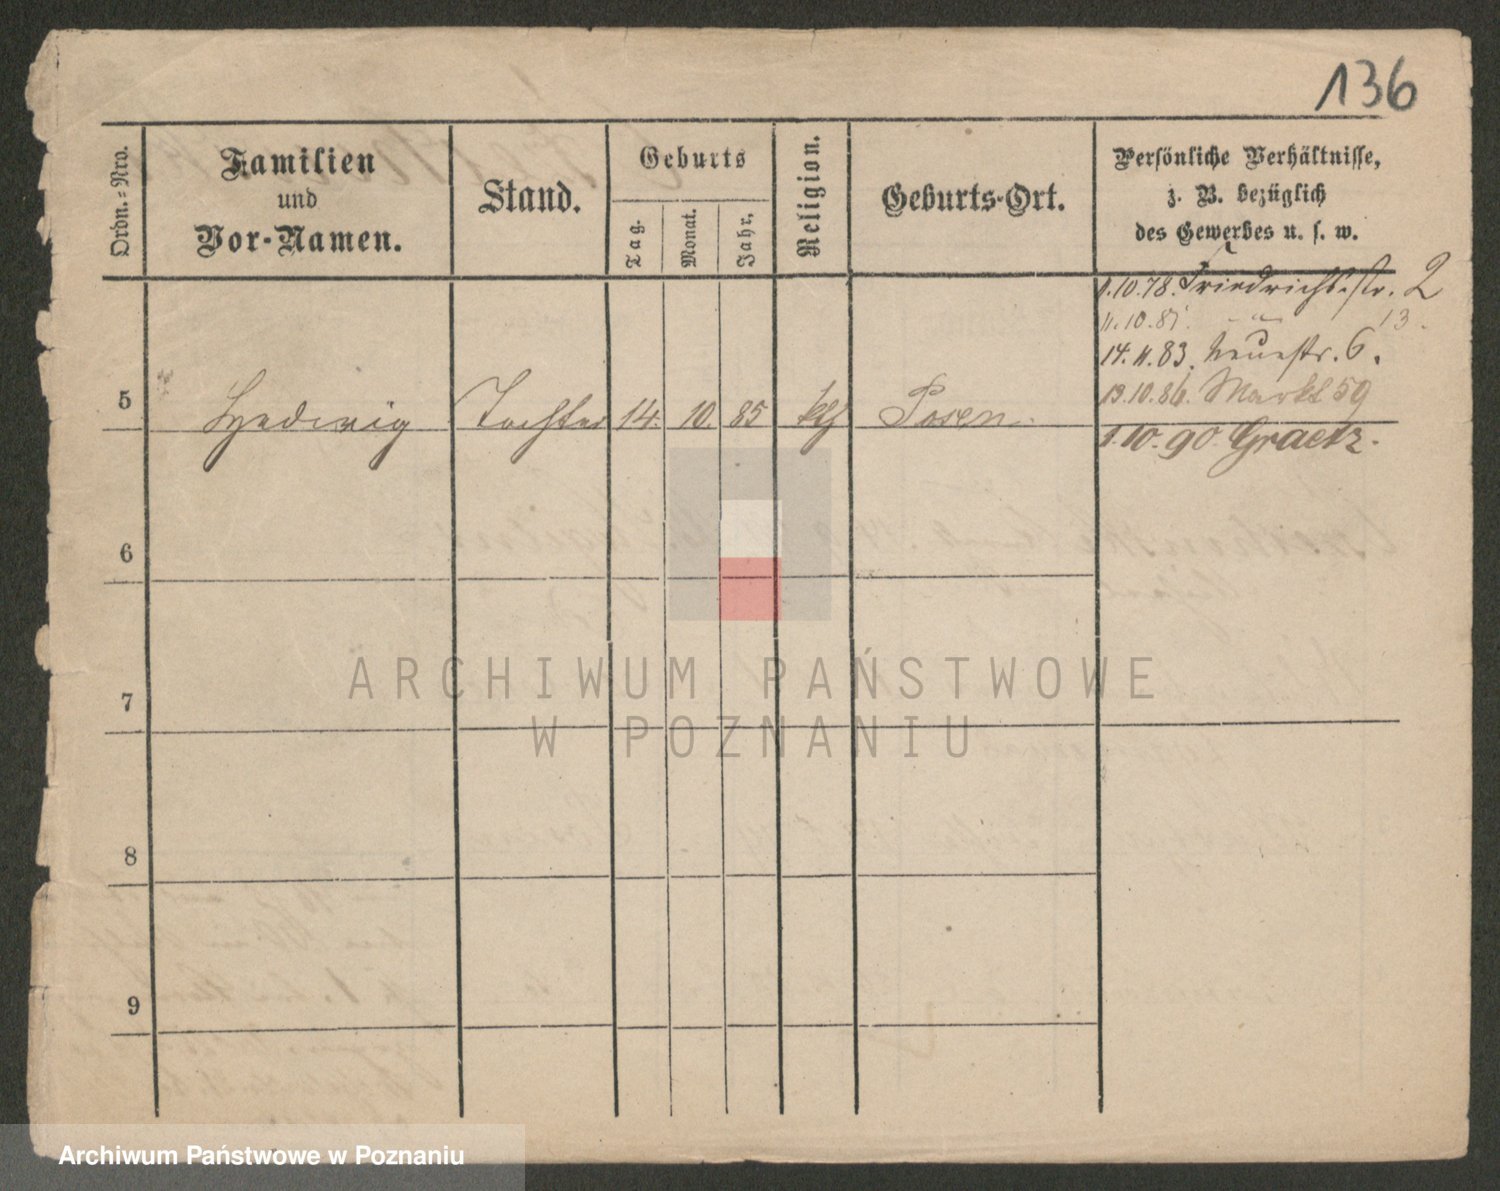 136
Ordn.-Nro.
Familien
und
Vor-Namen.
Stand.
Geburts
Tag.
Monat.
Jahr.
Religion.
Geburts-Ort.
Persönliche Verhältnisse,
z. B. bezüglich
des Gewerbes u. s. w.
1.10.78. Friedrichstr. 2
11.10.81. - " - 13.
14.11.83. Neuestr. 6.
13.10.86. Markt 59
5 Hedwig Tochter 14. 10. 85 kth Posen.
1.10.90. Graetz.
6
7
8
9
ARCHIWUM PAŃSTWOWE
W POZNANIU
Archiwum Państwowe w Poznaniu